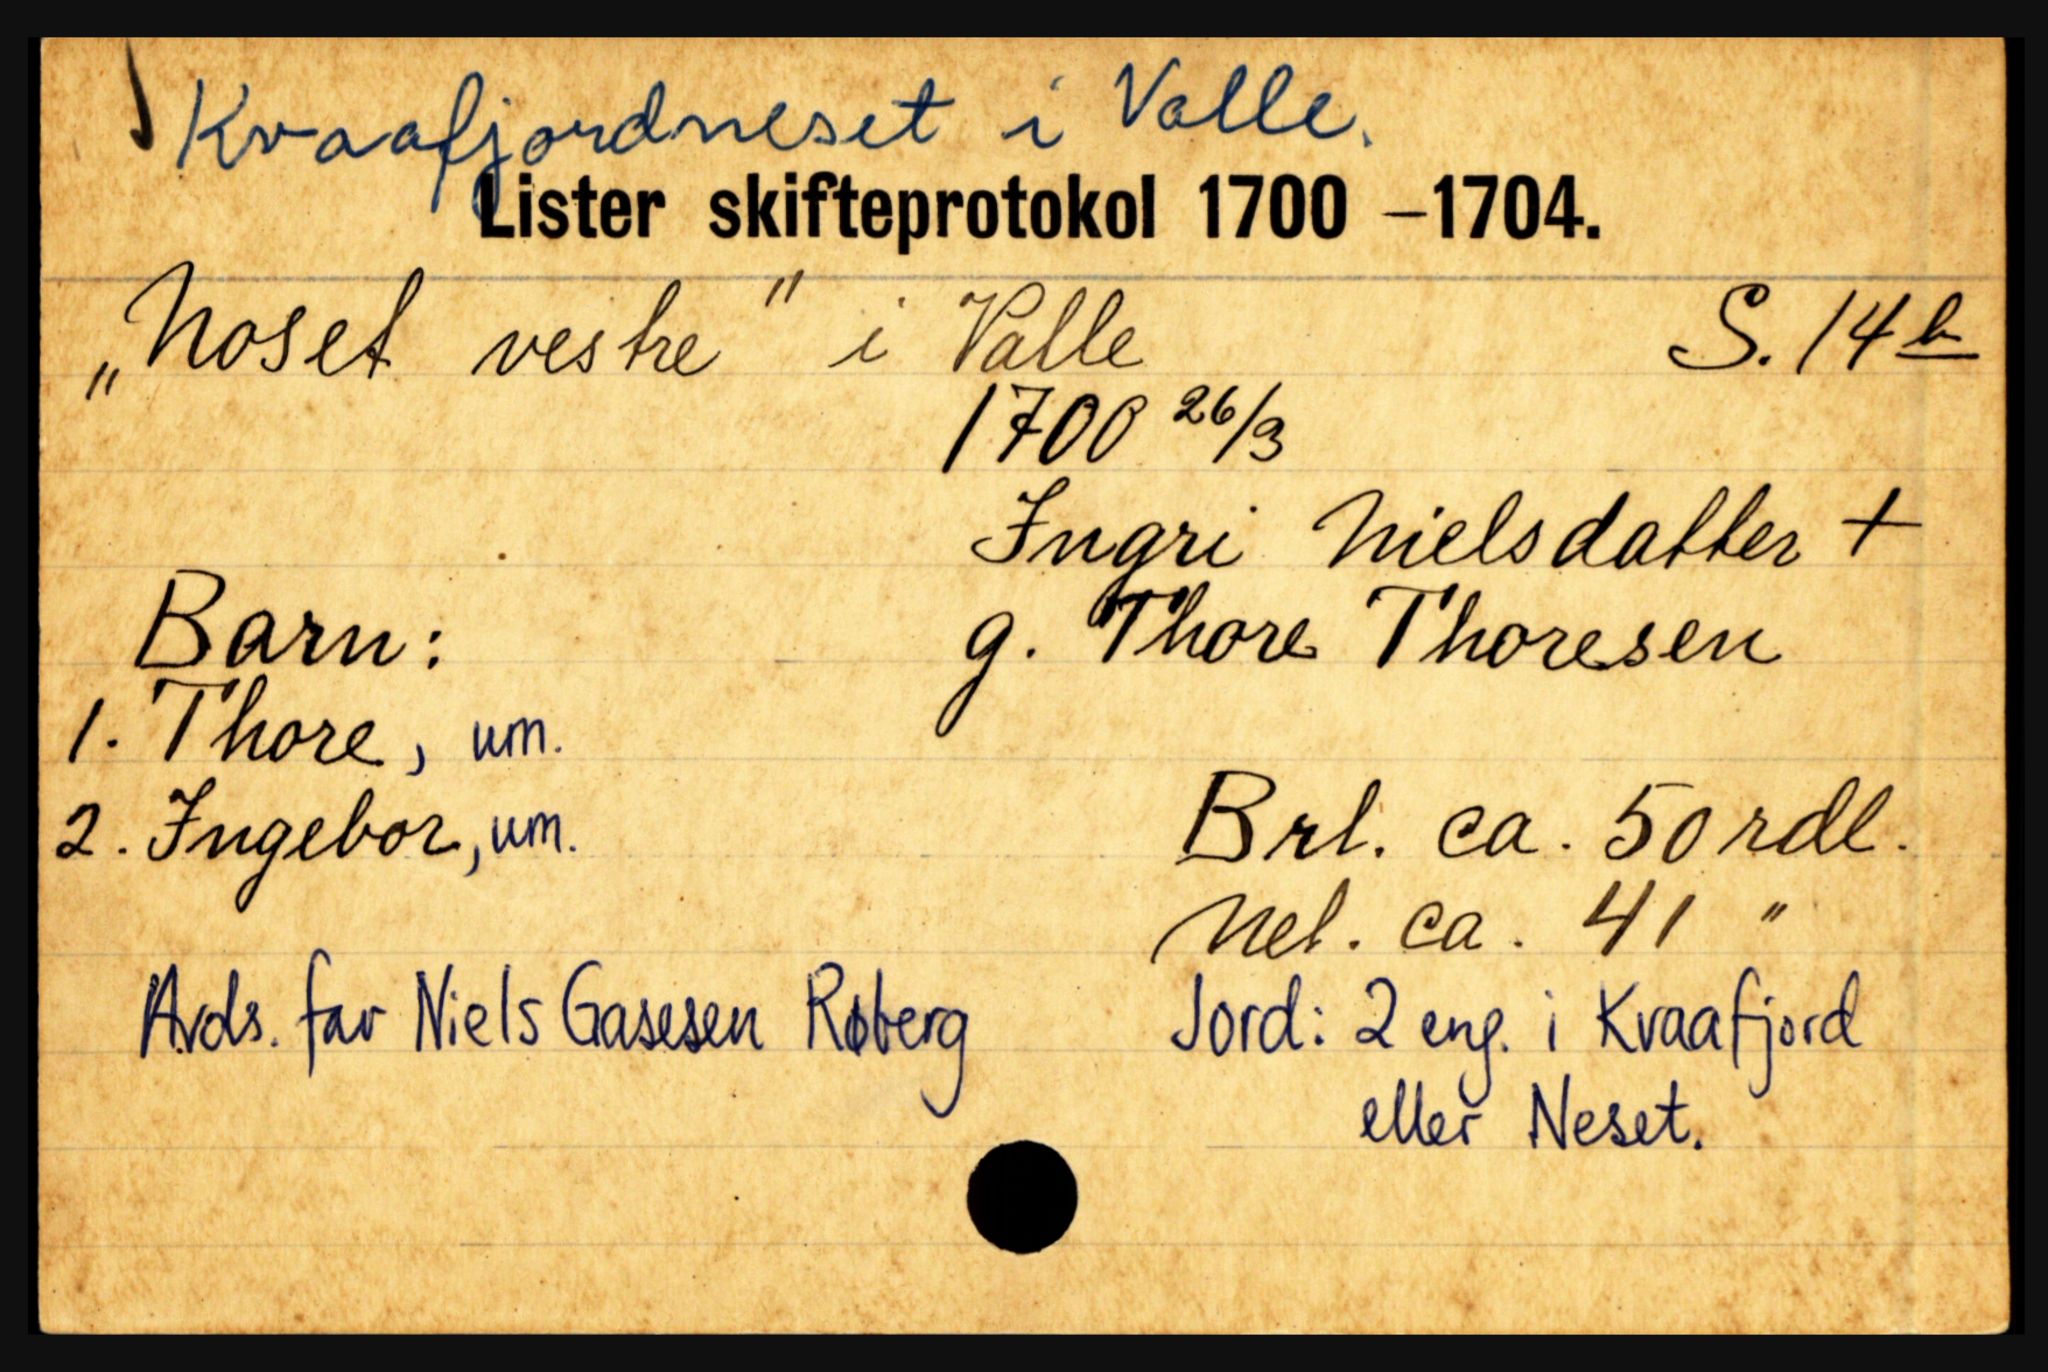 Kvaafjordneset i Valle.
Lister skifteprotokol 1700 –1704.
„Noset vestre" i Valle S. 14 b
1700 26/3
Ingri Nielsdatter +
Barn: g. Thore Thoresen
1. Thore, um.
2. Ingebor, um. Brl. ca. 50 rdl.
Nel. ca. 41 "
Avds. far Niels Gasesen Røberg Jord: 2 eng. i Kvaafjord
eller Neset.